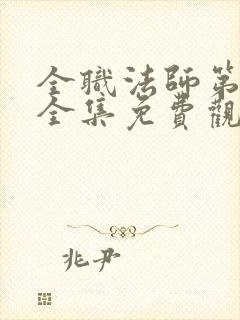 全職法師第
全集免費觀
兆尹